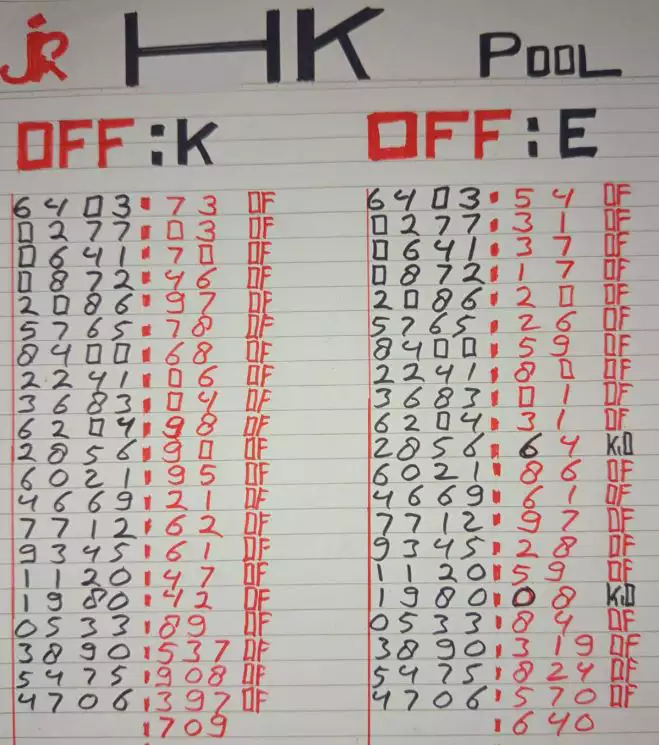 JR HK POOL
OFF:K
6403:73 OF
0277:03 OF
0641:70 OF
0872:46 OF
2086:97 OF
5765:78 OF
8400:68 OF
2241:06 OF
3683:04 OF
6204:98 OF
2856:90 OF
6021:95 OF
4669:21 OF
7712:62 OF
9345:61 OF
1120:47 OF
1980:42 OF
0533:89 OF
3890:537 OF
5475:908 OF
4706:397 OF
:709
OFF:E
6403:54 OF
0277:31 OF
0641:37 OF
0872:17 OF
2086:20 OF
5765:26 OF
8400:59 OF
2241:80 OF
3683:01 OF
6204:31 OF
2856:64 K.O
6021:86 OF
4669:61 OF
7712:97 OF
9345:28 OF
1120:59 OF
1980:08 K.O
0533:84 OF
3890:319 OF
5475:824 OF
4706:570 OF
:640